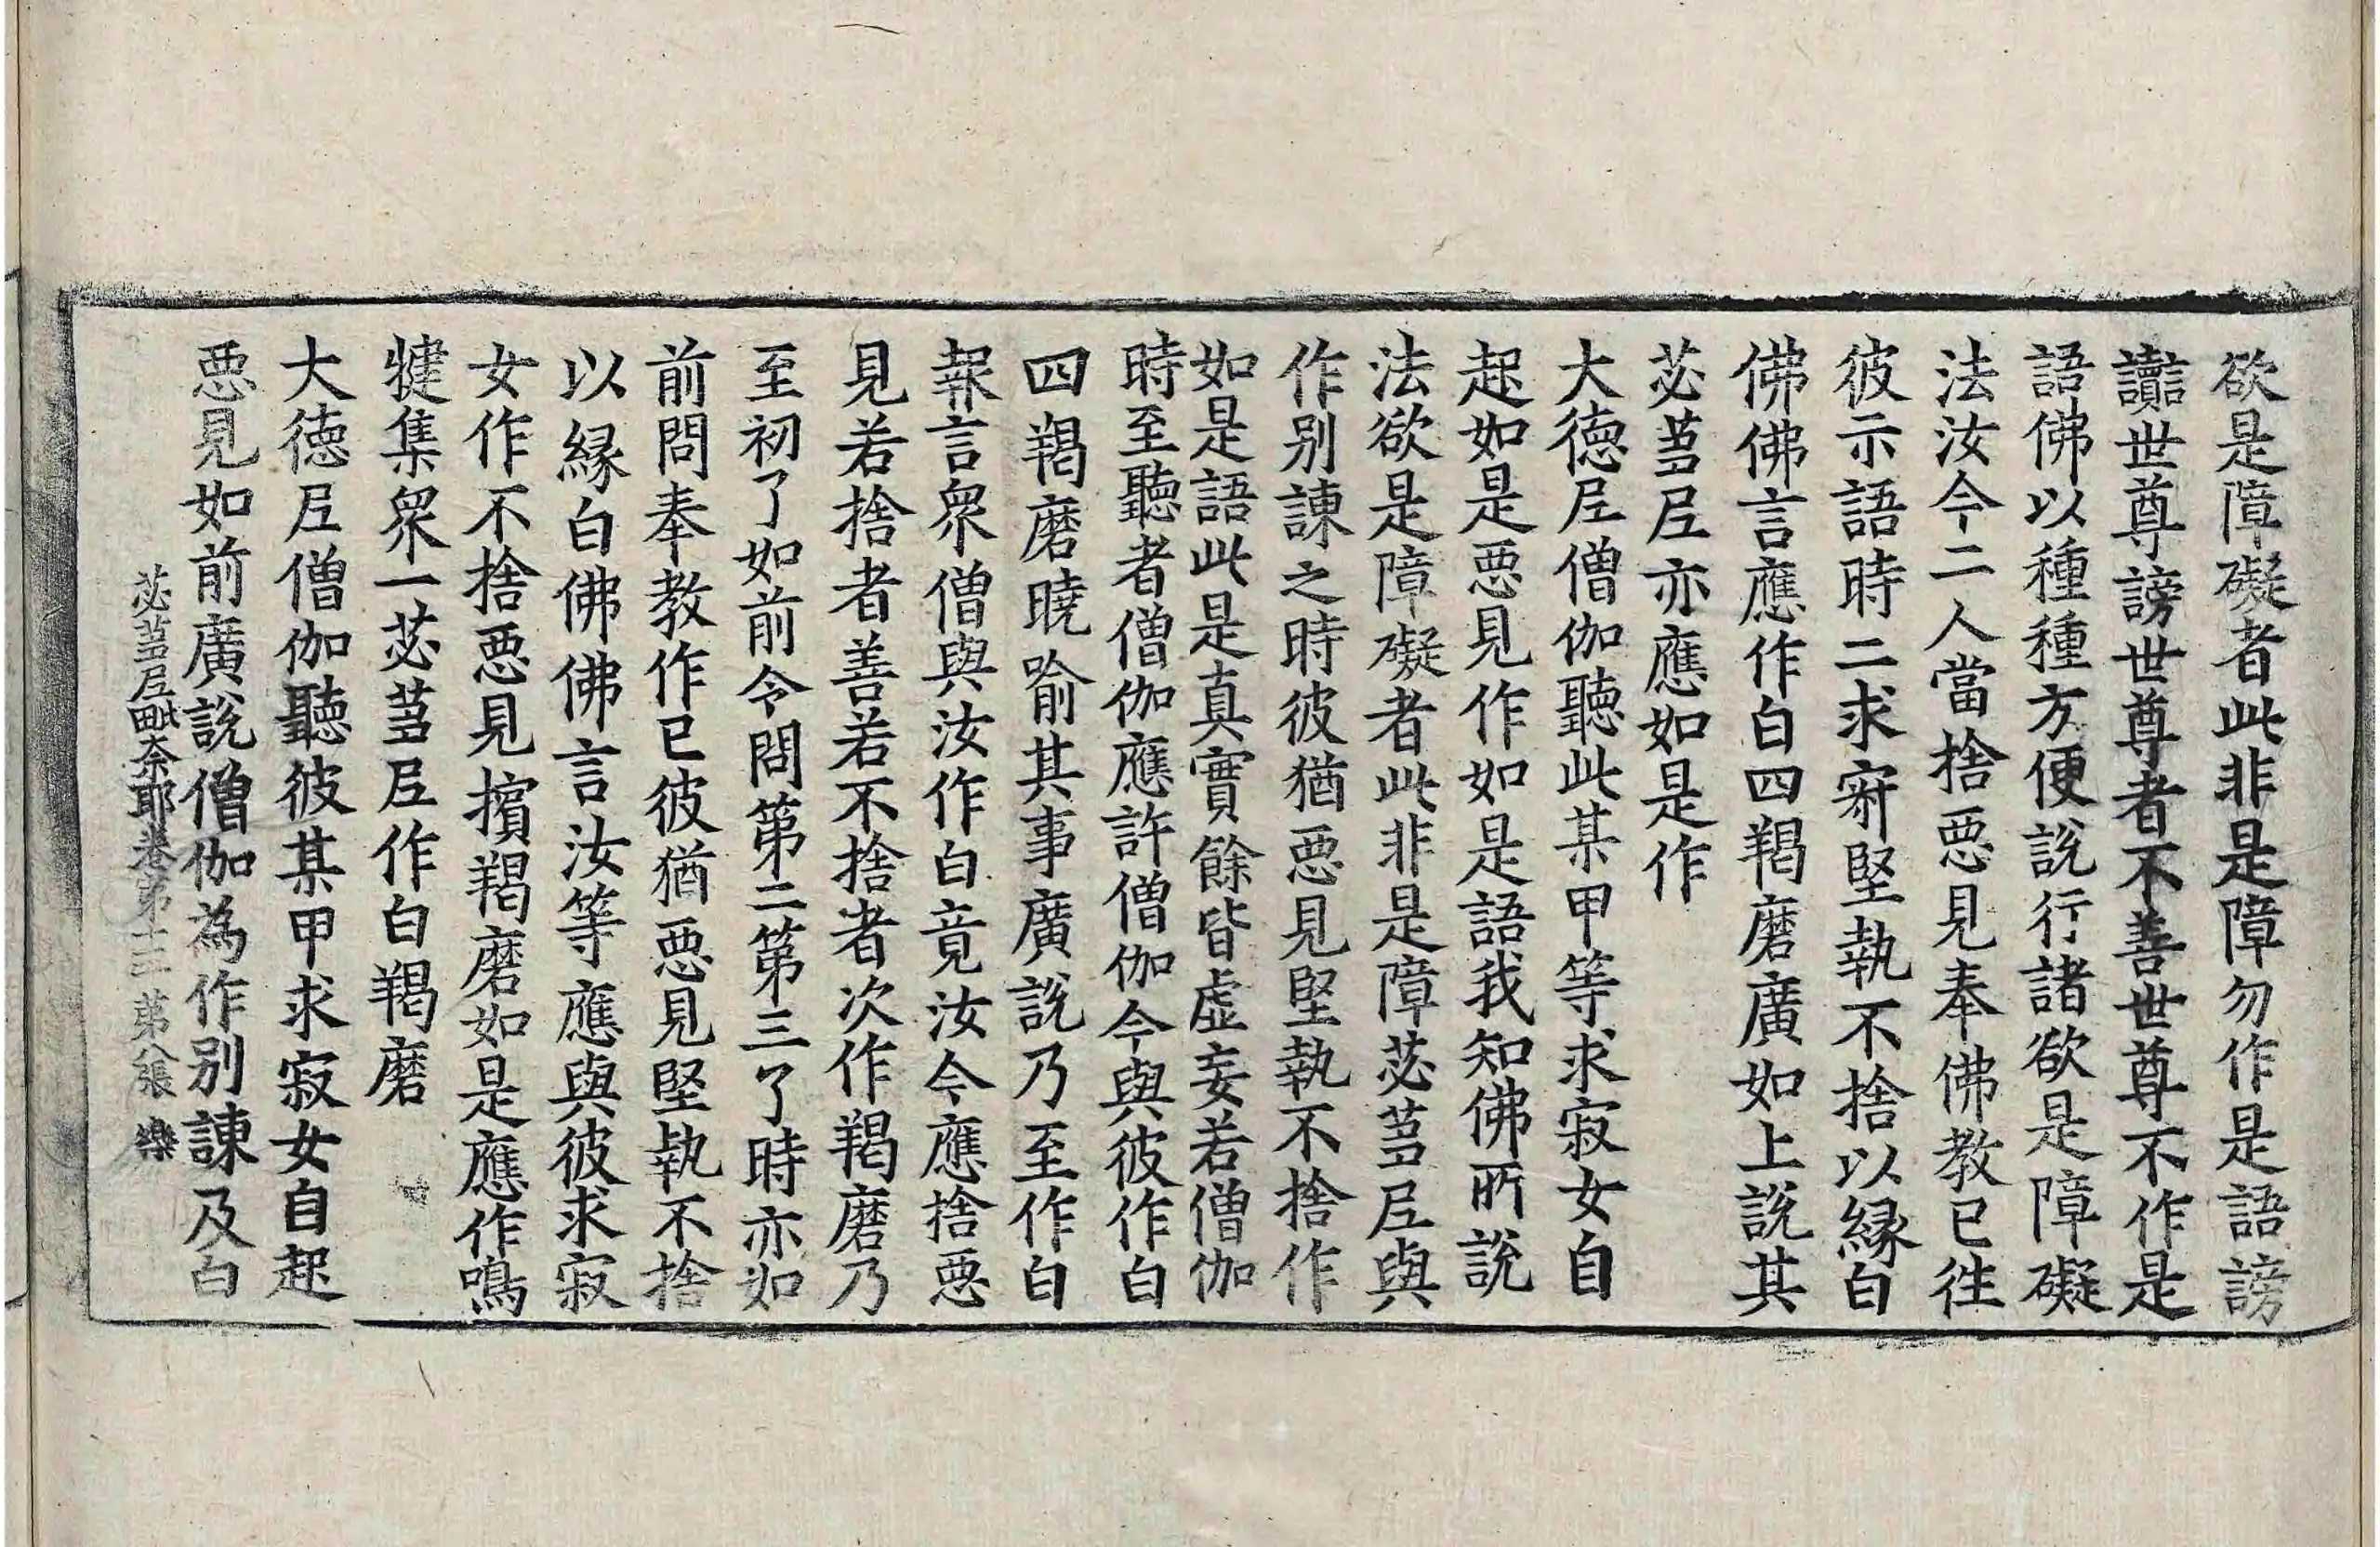 欲是障礙者此非是障勿作是語謗
讟世尊謗世尊者不善世尊不作是
語佛以種種方便說行諸欲是障礙
法汝今二人當捨惡見奉佛教已往
彼示語時二求㝛堅執不捨以緣白
佛佛言應作白四羯磨廣如上說其
苾芻尼亦應如是作
大德尼僧伽聽此某甲等求寂女自
起如是惡見作如是語我知佛所說
法欲是障礙者此非是障苾芻尼與
作別諫之時彼猶惡見堅執不捨作
如是語此是真實餘皆虛妄若僧伽
時至聽者僧伽應許僧伽今與彼作白
四羯磨曉喻其事廣說乃至作白
報言眾僧與汝作白竟汝今應捨惡
見若捨者善若不捨者次作羯磨乃
至初了如前令問第二第三了時亦如
前問奉教作已彼猶惡見堅執不捨
以緣白佛佛言汝等應與彼求寂
女作不捨惡見擯羯磨如是應作鳴
犍集眾一苾芻尼作白羯磨
大德尼僧伽聽彼某甲求寂女自起
惡見如前廣說僧伽為作別諫及白
苾芻尼毗奈耶卷第十三 第八張 樂